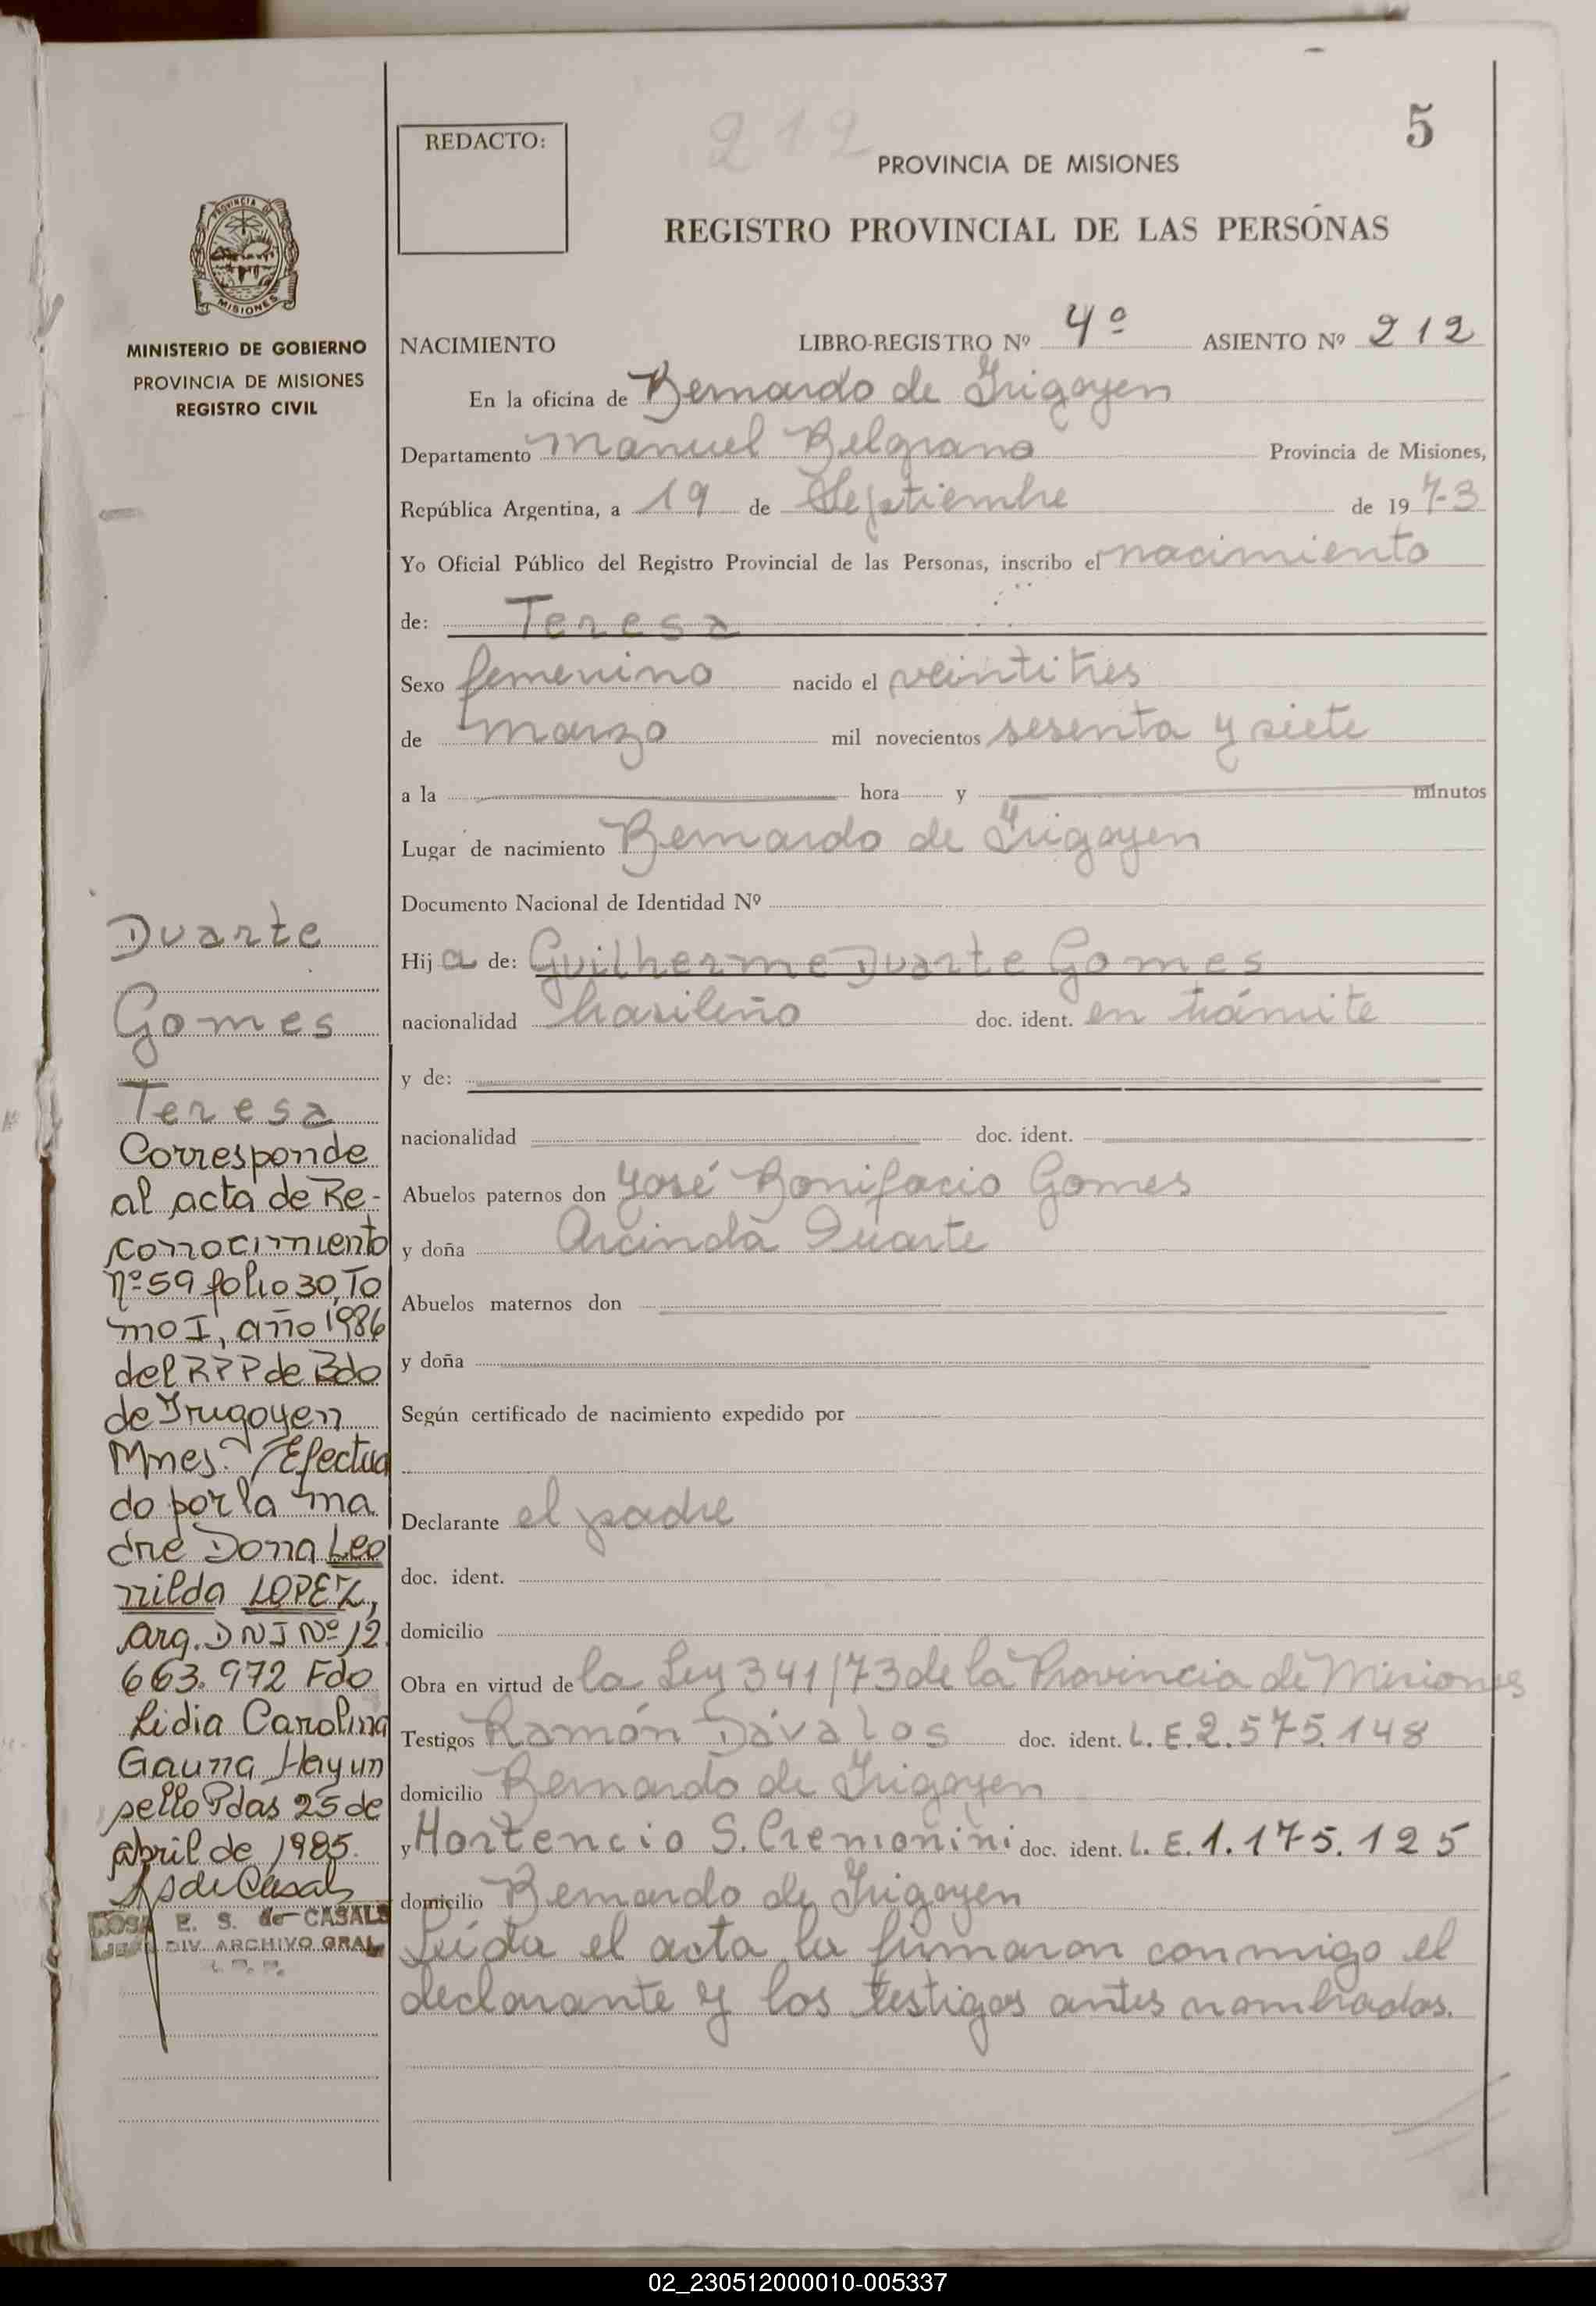 212
5
REDACTO:
PROVINCIA DE MISIONES
REGISTRO PROVINCIAL DE LAS PERSONAS
PROVINCIA DE
MISIONES
MINISTERIO DE GOBIERNO
PROVINCIA DE MISIONES
REGISTRO CIVIL
NACIMIENTO LIBRO-REGISTRO Nº 4º ASIENTO Nº 212
En la oficina de Bernardo de Irigoyen
Departamento Manuel Belgrano Provincia de Misiones,
República Argentina, a 19 de Septiembre de 1973
Yo Oficial Público del Registro Provincial de las Personas, inscribo el nacimiento
de: Teresa
Sexo femenino nacido el veintitres
de marzo mil novecientos sesenta y siete
a la hora y minutos
Lugar de nacimiento Bernardo de Irigoyen
Documento Nacional de Identidad Nº
Hija de: Guilherme Duarte Gomes
nacionalidad brasileño doc. ident. en trámite
y de:
nacionalidad doc. ident.
Abuelos paternos don José Bonifacio Gomes
y doña Arcinda Duarte
Abuelos maternos don
y doña
Según certificado de nacimiento expedido por
Declarante el padre
doc. ident.
domicilio
Obra en virtud de la Ley 341/73 de la Provincia de Misiones
Testigos Ramón Dávalos doc. ident. L. E. 2.575.148
domicilio Bernardo de Irigoyen
y Hortencio S. Cremonini doc. ident. L. E. 1.175.125
domicilio Bernardo de Irigoyen
Leída el acta la firmaron conmigo el
declarante y los testigos antes nombrados.
Duarte
Gomes
Teresa
Corresponde
al acta de Re-
conocimiento
Nº 59 folio 30, To
mo I, año 1986
del RPP de Bdo
de Irigoyen
Mnes. Efectua
do por la ma
dre Dona Leo
nilda LOPEZ,
Arg. DNI Nº 12
663.972 Fdo
Lidia Carolina
Gauna Hay un
sello Pdas 25 de
abril de 1985.
E. S. de CASALS
DIV. ARCHIVO GRAL
02_230512000010-005337